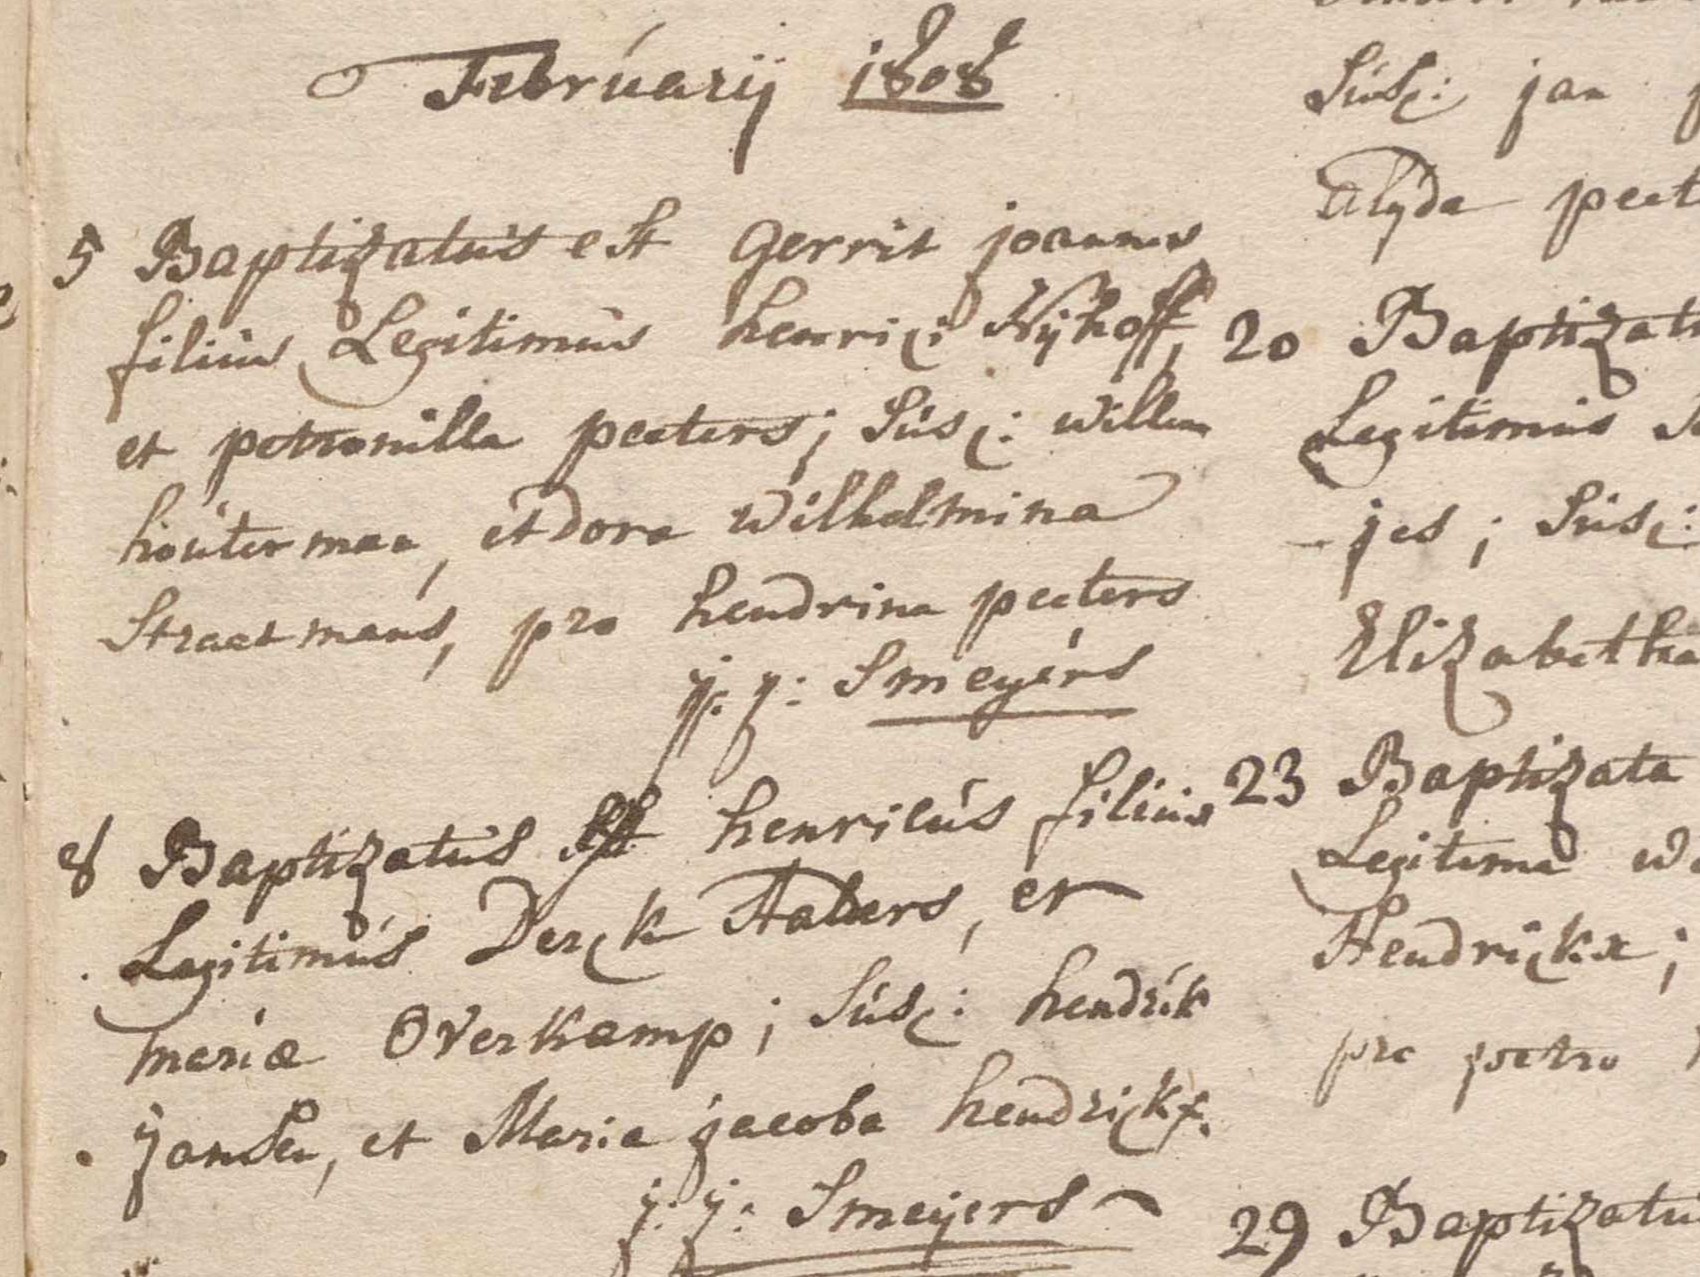 Februarij 1808
5 Baptizatus est Gerrit joannes
filius Legitimus henrici Nijhoff,
et petronilla peeters; Susc: willem
houterman, et Dora wilhelmina
Straetmans, pro hendrina peeters
j. j: Smeyers
8 Baptizatus est henricus filius
Legitimus Derck et
maria Overkamp; Susc: hendrik
Jansen, et Maria jacoba hendrickx.
j: j: Smeijers
Susc: jan
alyda peet
20 Baptizat
Legitimus
jes; Susc:
Elizabetha
23 Baptizata
Legitima
Hendrickx;
pro petro
29 Baptizatu